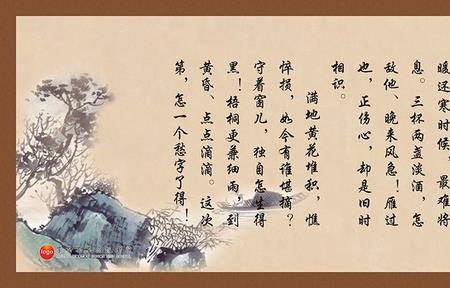 暖还寒时候，最难将
息。三杯两盏淡酒，怎
敌他、晚来风急！雁过
也，正伤心，却是旧时
相识。
满地黄花堆积，憔
悴损，如今有谁堪摘？
守着窗儿，独自怎生得
黑！梧桐更兼细雨，到
黄昏、点点滴滴。这次
第，怎一个愁字了得！
logo